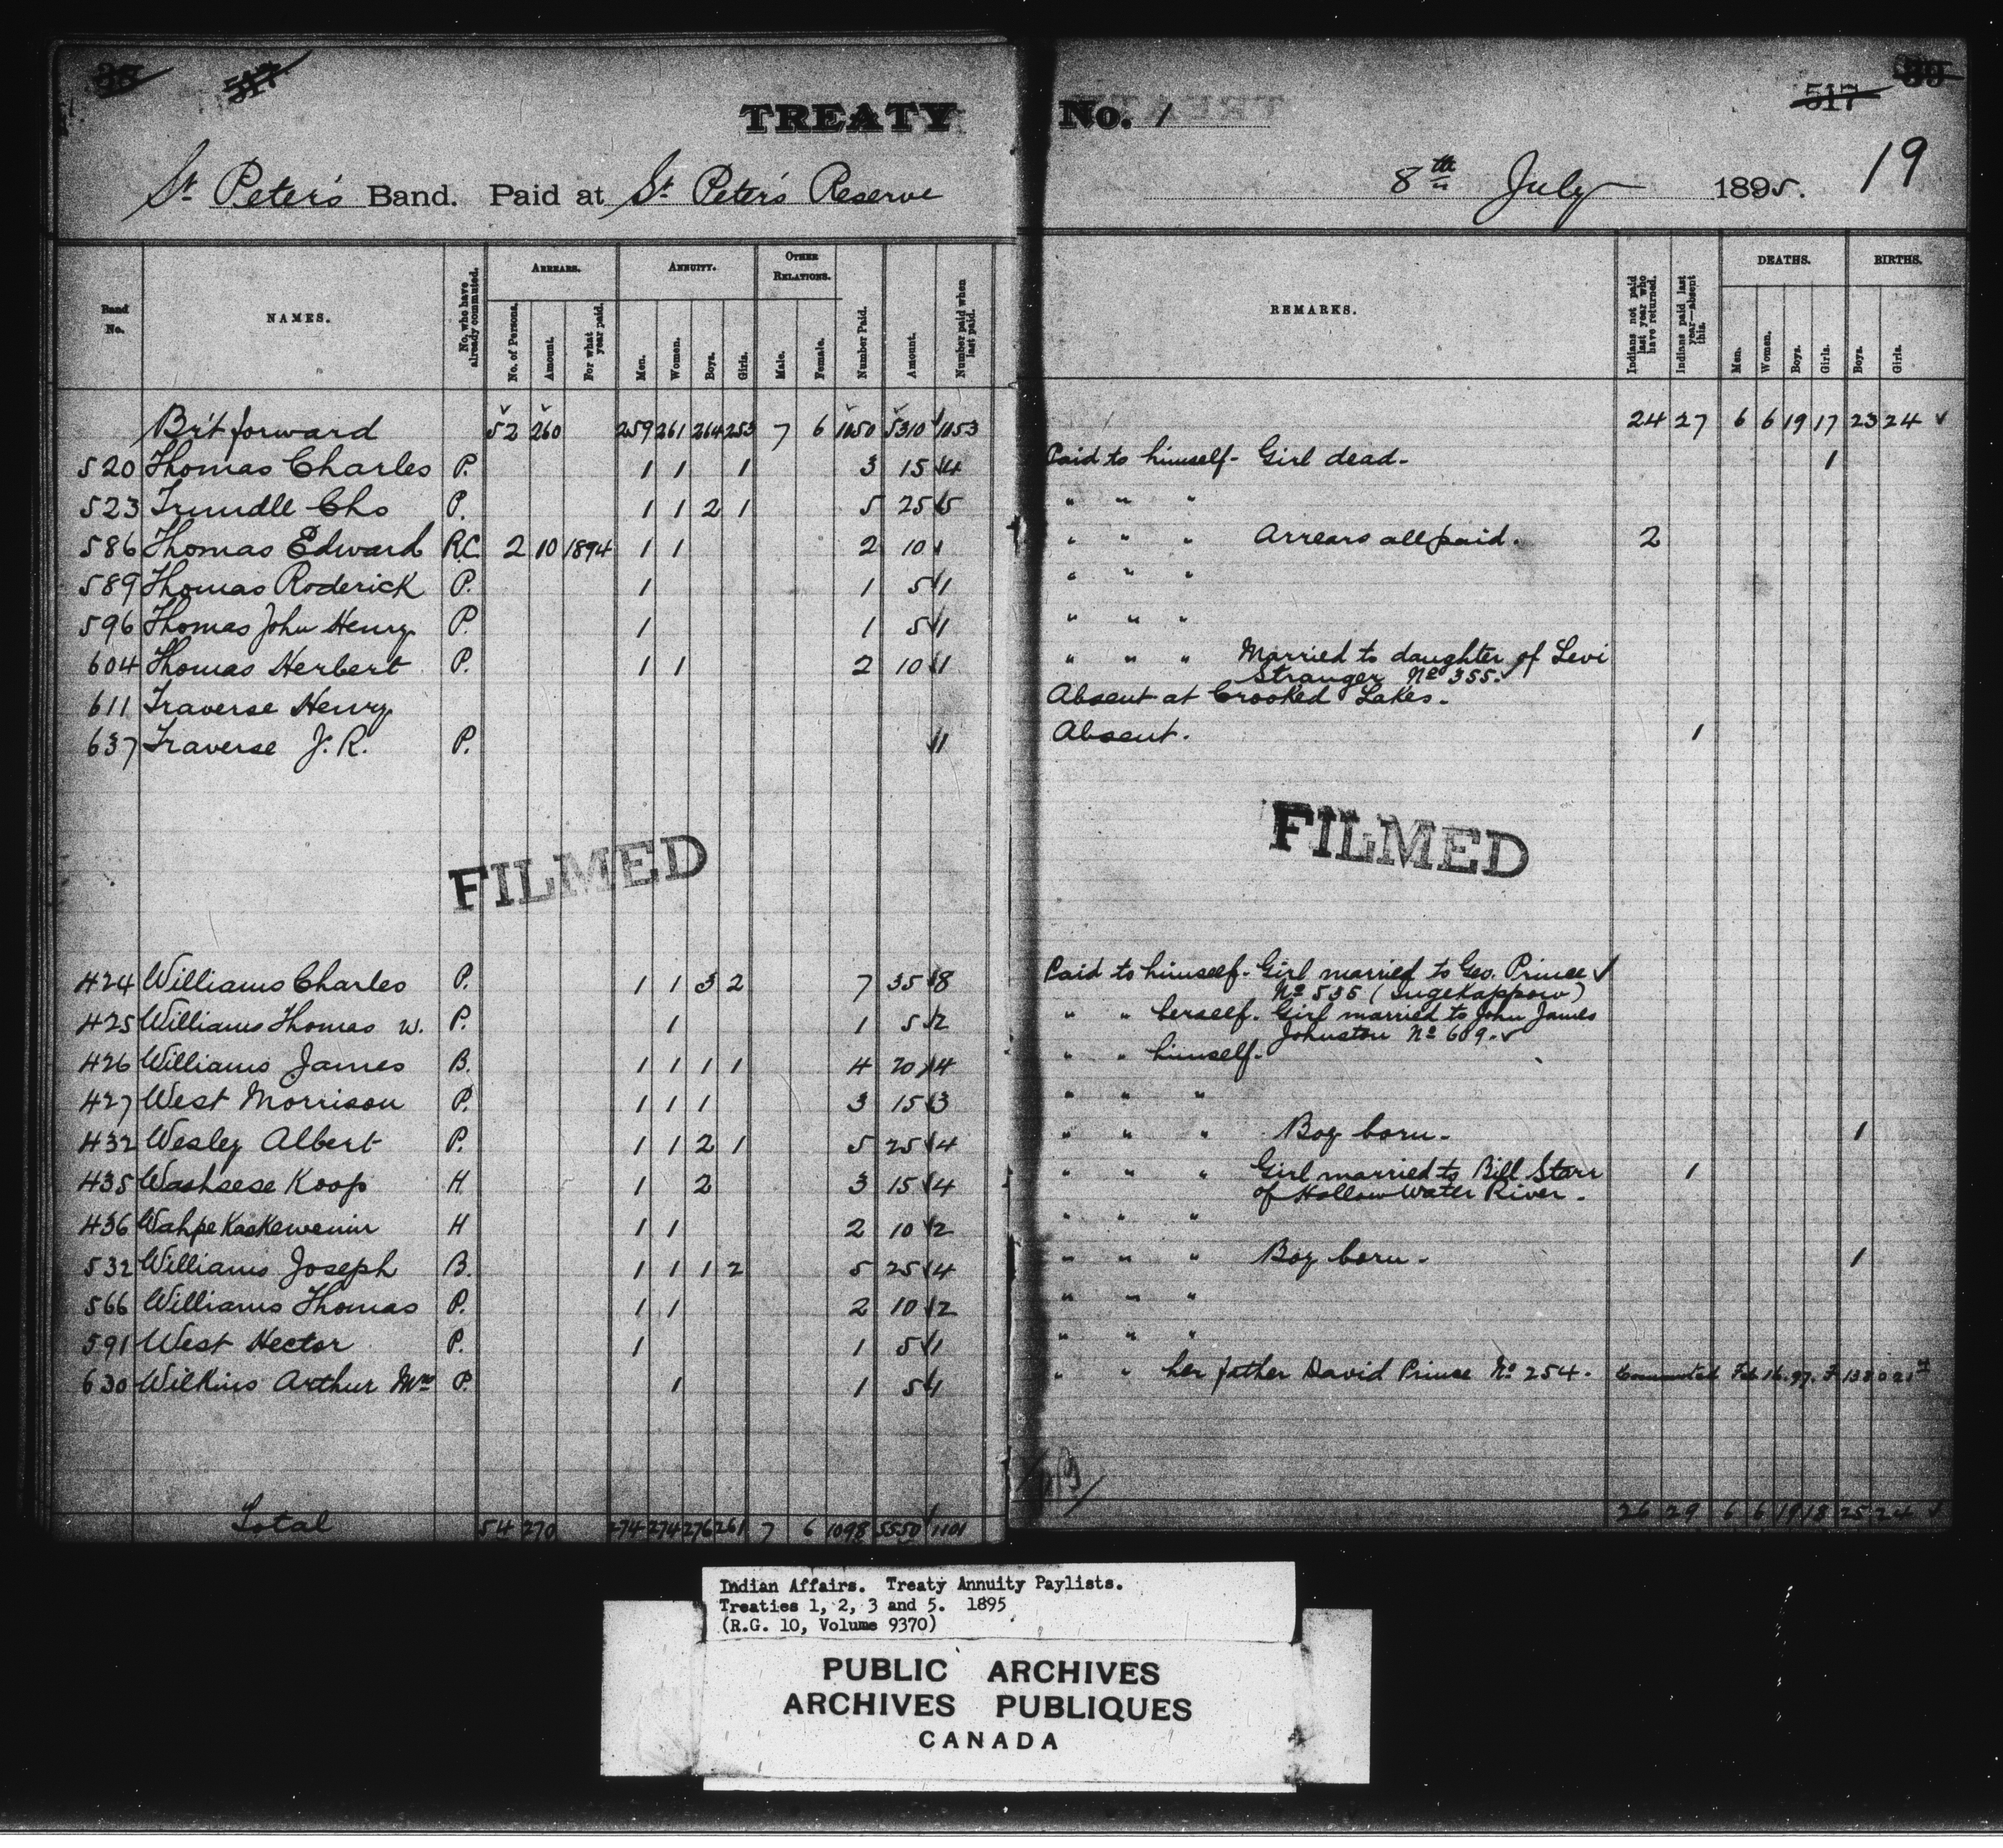 38 517
TREATY No. 1
517 39
19
St Peter's Band. Paid at St Peter's Reserve 8th July 1895.
Band No.
NAMES.
No. who have already commuted.
ARREARS.
No. of Persons.
Amount.
For what year paid.
ANNUITY.
Men.
Women.
Boys.
Girls.
OTHER RELATIONS.
Male.
Female.
Number Paid.
Amount.
Number paid when last paid.
REMARKS.
Indians not paid last year who have returned.
Indians paid last year—absent this.
DEATHS.
Men.
Women.
Boys.
Girls.
BIRTHS.
Boys.
Girls.
Br't forward 52 260 259 261 264 253 7 6 1050 5310 1053 24 27 6 6 19 17 23 24 ✓
520 Thomas Charles P. 1 1 1 3 15 ✓4 Paid to himself - Girl dead - 1
523 Trundle Chs P. 1 1 2 1 5 25 ✓5 " " "
586 Thomas Edward R.C. 2 10 1894 1 1 2 10 ✓ " " " Arrears all paid. 2
589 Thomas Roderick P. 1 1 5 ✓1 " " "
596 Thomas John Henry P. 1 1 5 ✓1 " " "
604 Thomas Herbert P. 1 1 2 10 ✓1 " " " Married to daughter of Levi
Stranger No 355. ✓
611 Traverse Henry Absent at Crooked Lakes.
637 Traverse J. R. P. ✓1 Absent. 1
FILMED FILMED
424 Williams Charles P. 1 1 3 2 7 35 ✓8 Paid to himself - Girl married to Geo. Prince ✓
No 535 (
425 Williams Thomas w. P. 1 1 5 ✓2 " " herself. Girl married to John James
Johnston No 609. ✓
426 Williams James B. 1 1 1 1 4 20 ✓4 " " himself.
427 West Morrison P. 1 1 1 3 15 ✓3 " " "
432 Wesley Albert P. 1 1 2 1 5 25 ✓4 " " " Boy born - 1
435 Washsese Koop H 1 2 3 15 ✓4 " " " Girl married to Bill Starr 1
of Hollow Water River -
436 Wahpekaekewenin H 1 1 2 10 ✓2 " " "
532 Williams Joseph B. 1 1 1 2 5 25 ✓4 " " " Boy born - 1
566 Williams Thomas P. 1 1 2 10 ✓2 " " "
591 West Hector P. 1 1 5 ✓1 " " "
630 Wilkins Arthur Mrs P. 1 1 5 ✓1 " " her father David Prince No 254. Commuted Feb 16. 97.
Total 54 270 274 274 276 261 7 6 1098 5550 1101 26 29 6 6 19 18 25 24 ✓
Indian Affairs. Treaty Annuity Paylists.
Treaties 1, 2, 3 and 5. 1895
(R.G. 10, Volume 9370)
PUBLIC ARCHIVES
ARCHIVES PUBLIQUES
CANADA